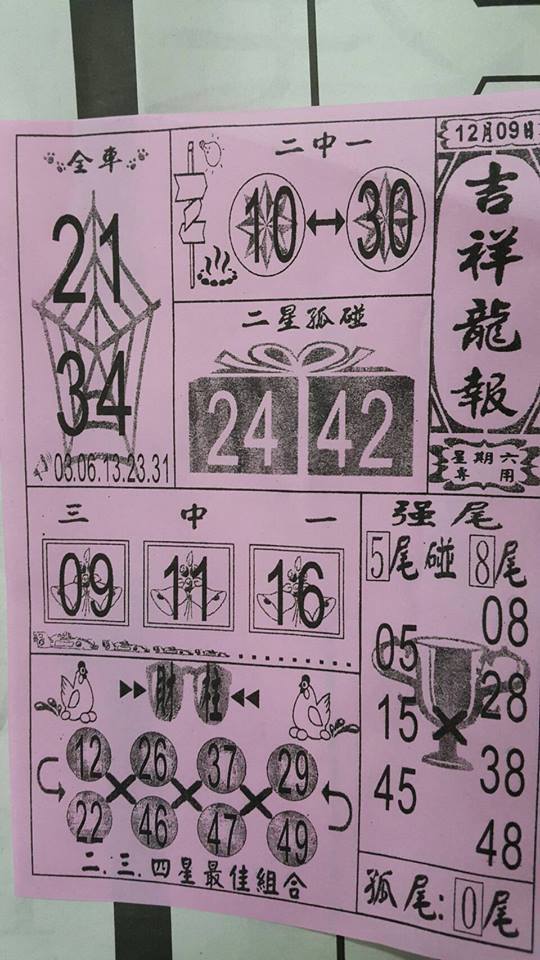 12月09日
吉祥龍報
星期六
專用
全車
21
34
03.06.13.23.31
二中一
10 ↔ 30
二星孤碰
24 42
三中一
09 11 16
强尾
5尾碰8尾
05 08
15 × 28
45 38
48
孤尾:0尾
財柱
12 26 37 29
× × ×
22 46 47 49
二.三.四星最佳組合